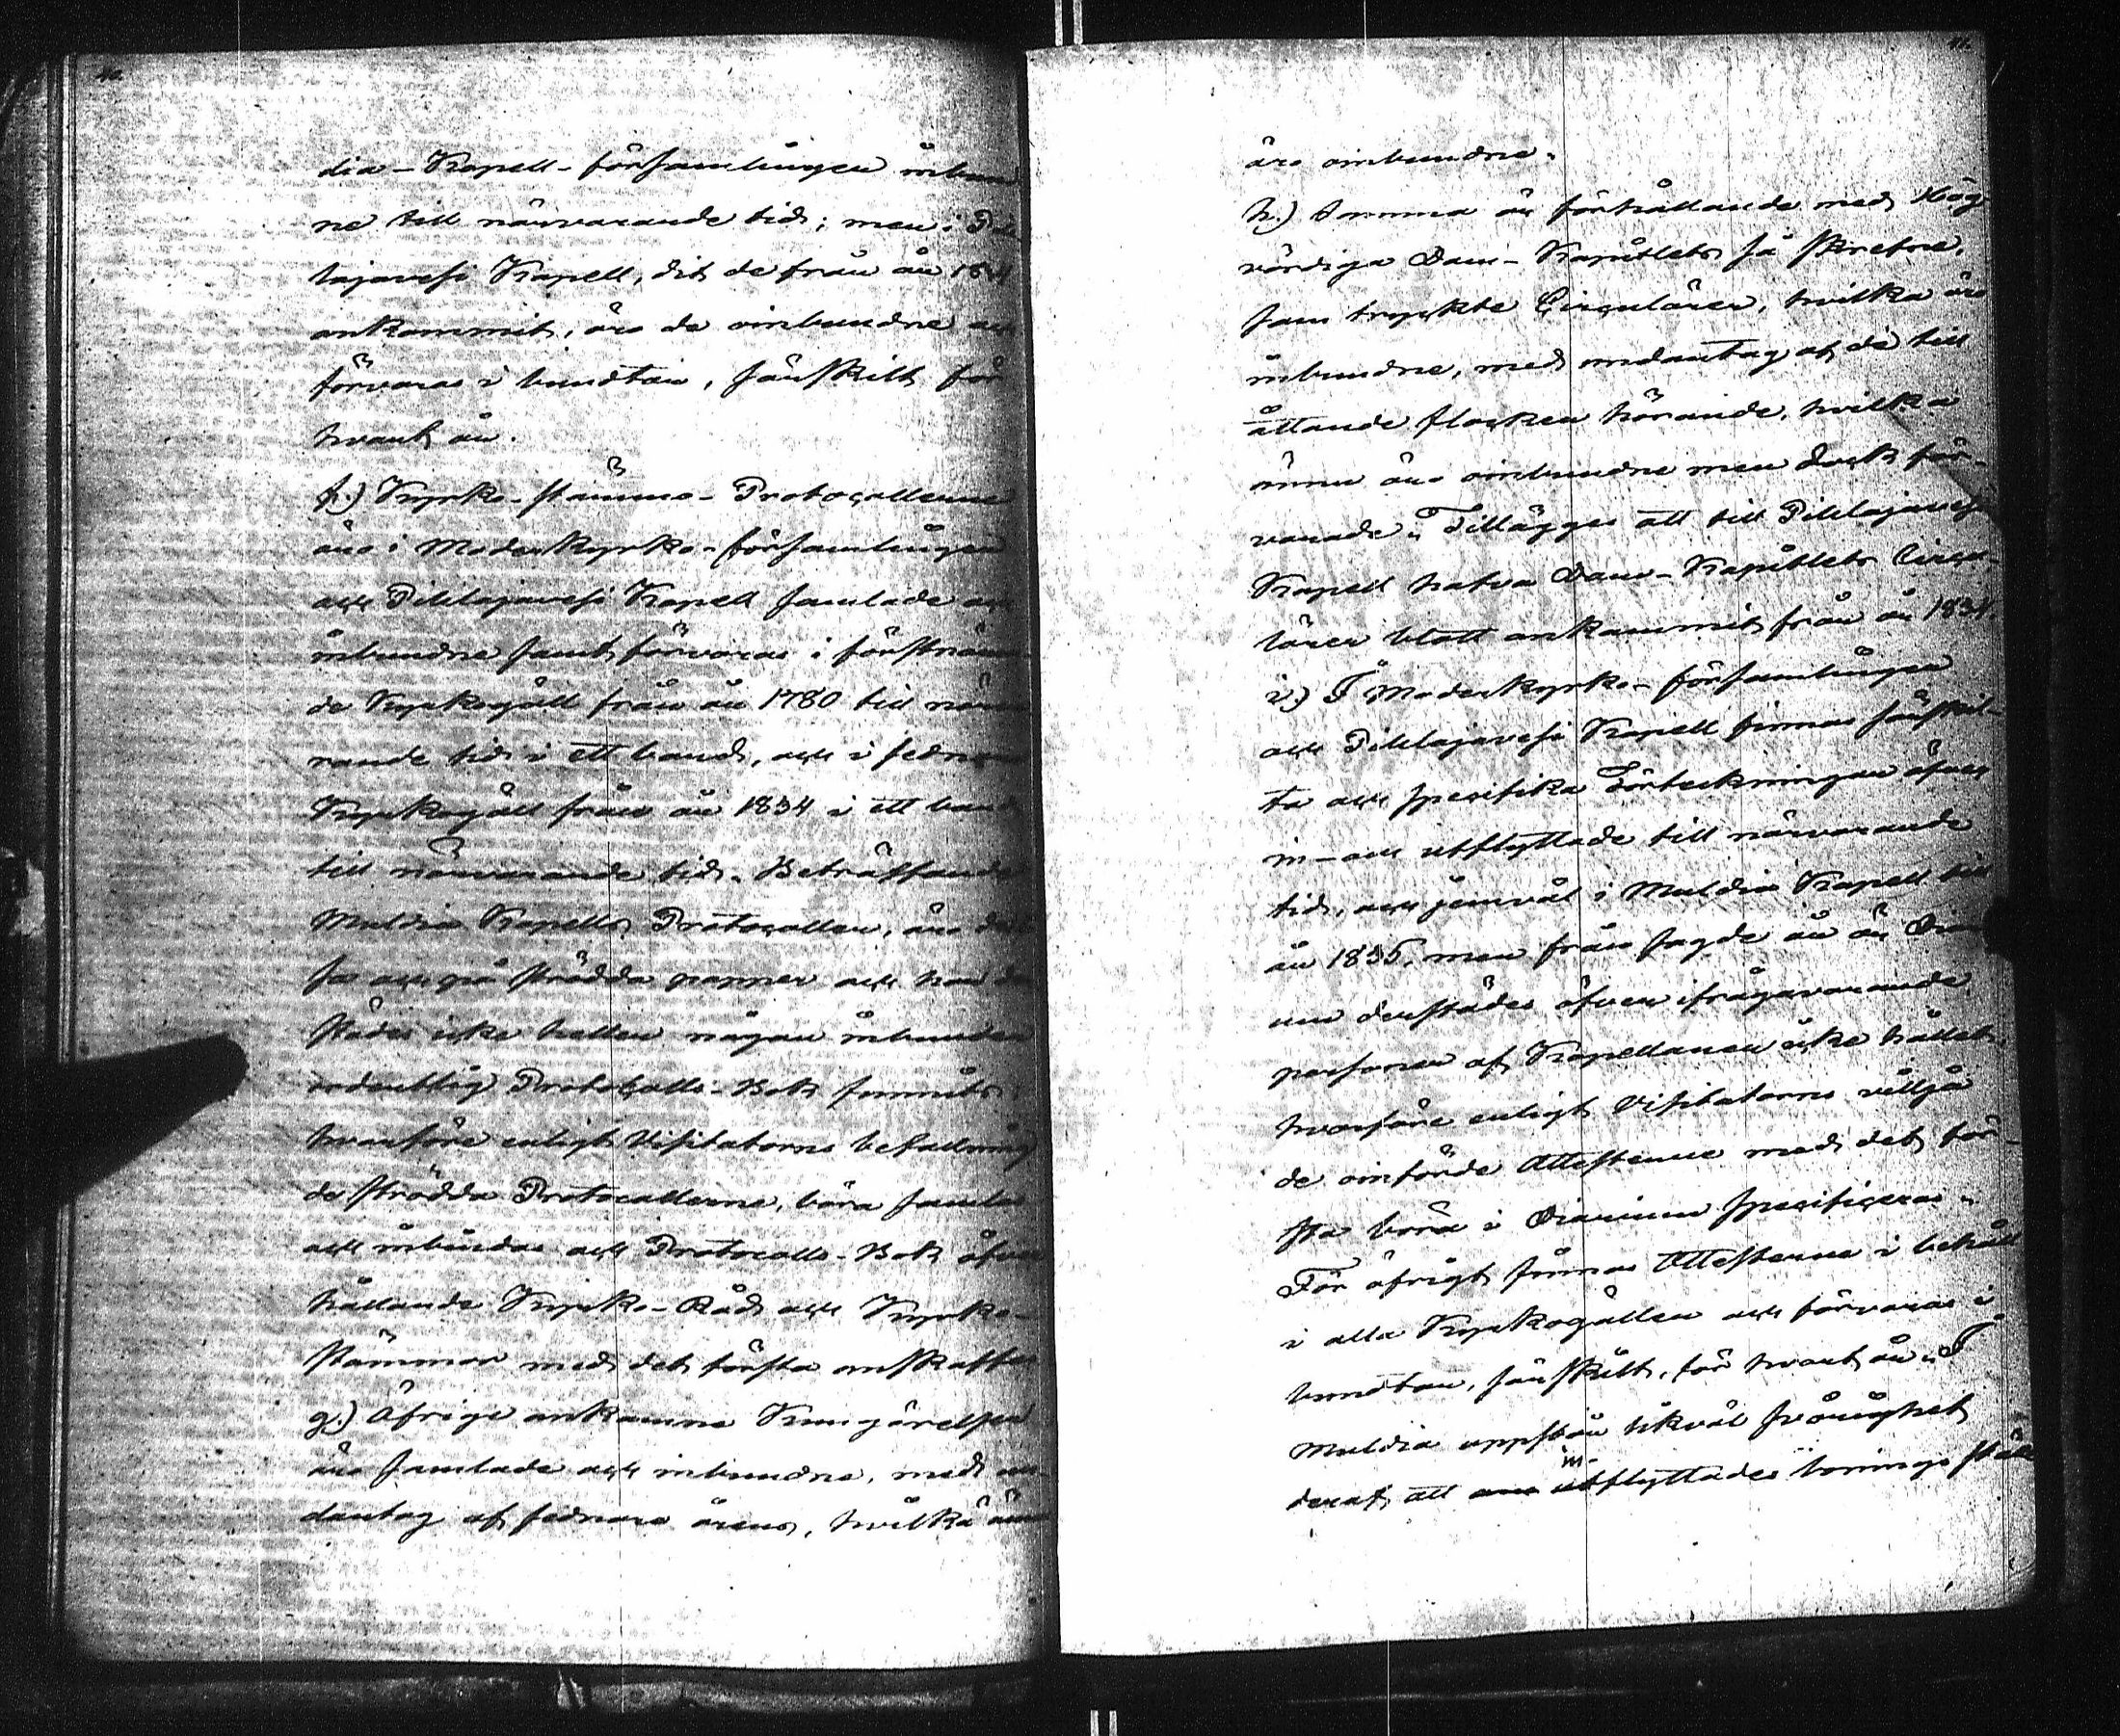 40.
dia-Kapell-församlingen inbun
ne till närvarande tid; men i Pih
lajavesi Kapell, dit de från år 1834
ankommit, äro de oinbundne och
förvaras i bundtar, särskilt för
hvart år.
f.) Kyrko-stämmo-Protocollerne
äro i Moderkyrko-församlingen
och Pihlajavesi Kapell samlade och
inbundne samt förvaras i förstnämn
de Kyrkogäll från år 1780 till närva
rande tid i ett band, och i sednare
Kyrkogäll från år 1834 i ett band
till närvarande tid. Beträffande
Muldia Kapells Protocoller, äro des
sa och på strödda papper och har der
städes icke heller någon inbunden
ordentlig Protocolls-Bok funnits
hvarföre enligt Visitatorns befallning
de strödda Protocollerne, böra samlas
och inbindas och Protocolls-Bok öfver
hållande Kyrko-Råd och Kyrko-
stämmor med det första anskaffas
g.) Öfrige ankomne Kungörelser
äro samlade och inbundne, med un
dantag af sednare årens, hvilka ännu
41.
äro oinbundne.
h.) Samma är förhållande med Hög
vördiga Dom-Kapitlets så skrefne,
som tryckte Circulärer, hvilka äro
inbundne, med undantag af de till
åttande flocken hörande, hvilka
ännu äro oinbundne men dock för-
varade. Tillägges att till Pihlajavesi
Kapell hafva Dom-Kapitlets Circu-
lärer blott ankommit från år 1834.
i.) I Moderkyrko-församlingen
och Pihlajavesi Kapell finnas särskil-
ta och specifika Förteckningar öfver
in- och utflyttade till närvarande
tid, och jemväl i Muldia Kapell till
år 1835, men från sagde år är Diari
um derstädes öfver ifrågavarande
personer af Kapellanen icke hållet
hvarföre enligt Visitatorns vilja
de oinförde Attesterne med det för-
sta böra i Diarium specificeras.
För öfrigt finnas Attesterne i behåll
i alla Kyrkogällen och förvaras i
bundtar, särskilt, för hvart år. I
Muldia uppstår likväl svårighet
in
deraf, att utflyttades bonings ställe